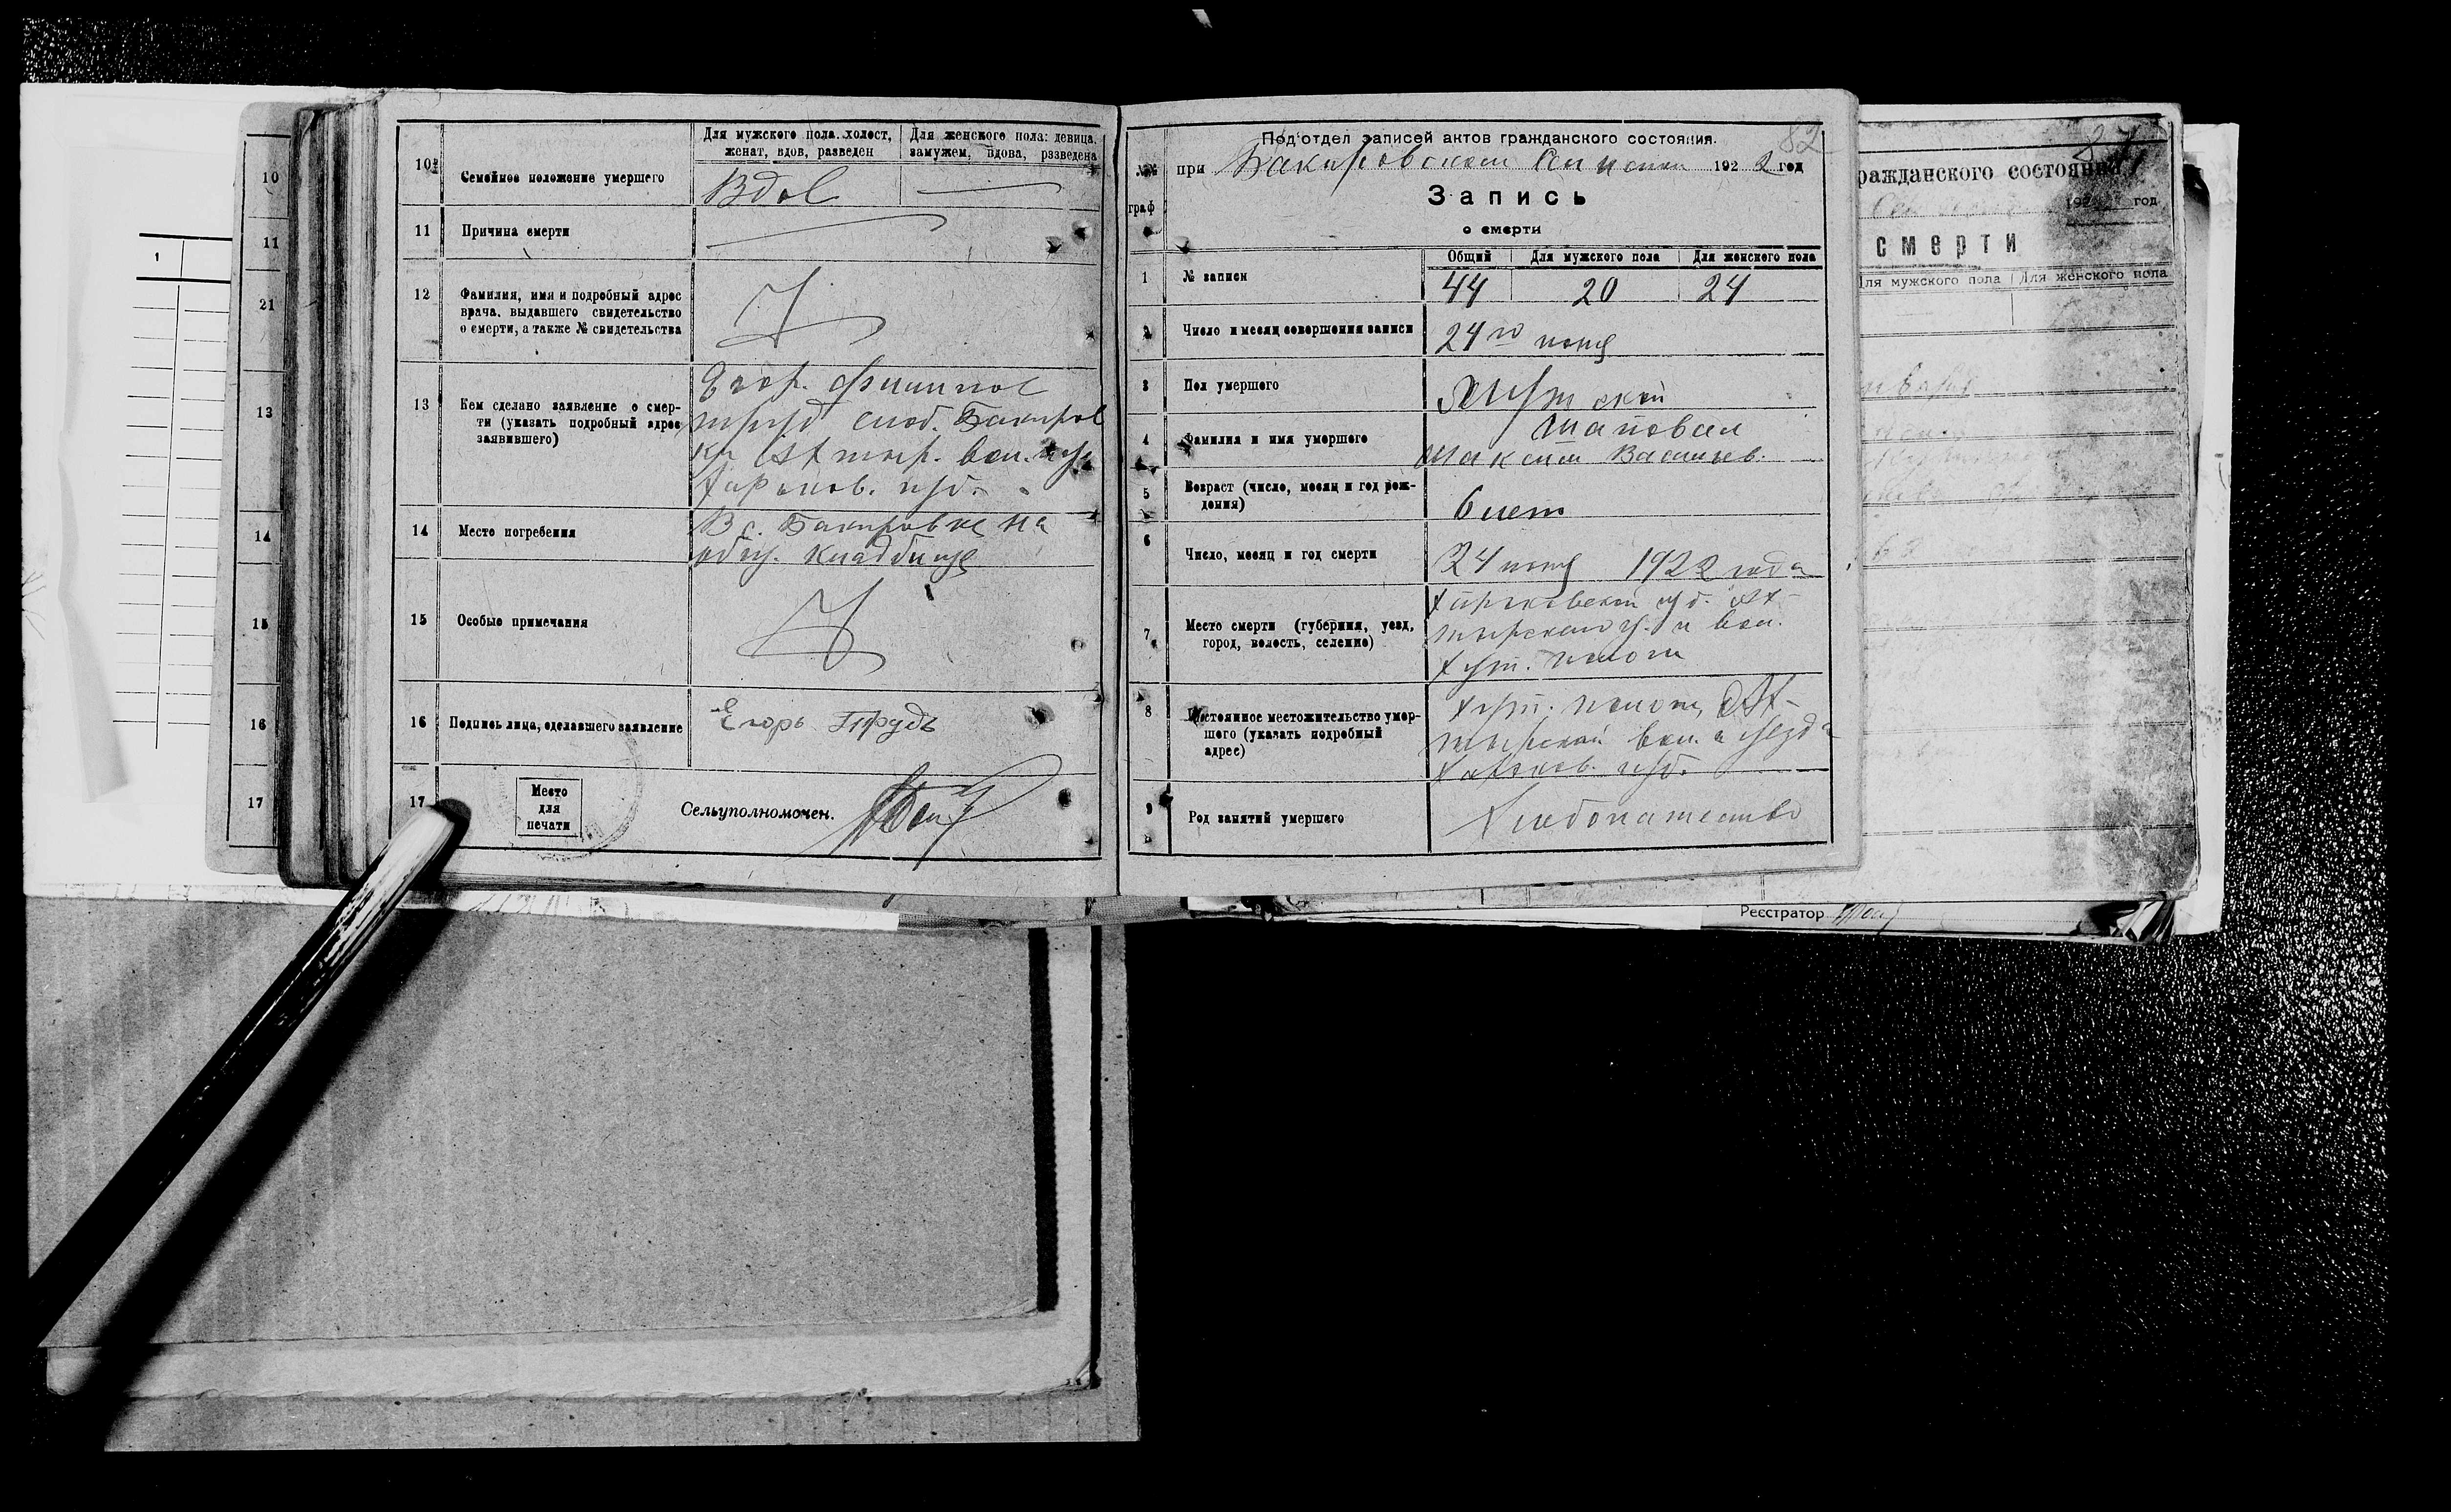 10
11
21
13
14
15
16
17
1
10
Семейное положение умершего
Для мужского пола: холост,
женат, вдов, разведен
Для женского пола: девица,
замужем, вдова, разведена
Вдов
11
Причина смерти
12
Фамилия, имя и подробный адрес
врача, выдавшего свидетельство
о смерти, а также № свидетельства
13
Кем сделано заявление о смер-
ти (указать подробный адрес
заявившего)
Егор. Филиппов
слоб. Бакиров
ки Ахтыр. вол. и у.
Харьков. губ.
14
Место погребения
В с. Бакировке на
общ. кладбище
15
Особые примечания
16
Подпись лица, сделавшего заявление
Егоръ
17
Место
для
печати
Сельуполномочен.
82
Под'отдел записей актов гражданского состояния.
при Бакировском 1922 год
№№
граф
Запись
о смерти
1
№ записи
Общий
Для мужского пола
Для женского пола
44
20
24
2
Число и месяц совершения записи
24го
3
Пол умершего
Мужской
4
Фамилия и имя умершего
Шаповал
Максим Васильев.
5
Возраст (число, месяц и год рож-
дения)
лет
6
Число, месяц и год смерти
24 1922 года
7
Место смерти (губерния, уезд,
город, волость, селение)
Харьковской губ. Ах-
тырского у. и вол.
хут.
8
Постоянное местожительство умер-
шего (указать подробный
адрес)
хут. Ах-
тырской вол. и уезда
Харьков. губ.
9
Род занятий умершего
Хлебопашество
ражданского состояния
192 год
смерти
Для мужского пола
Для женского пола
Реестратор